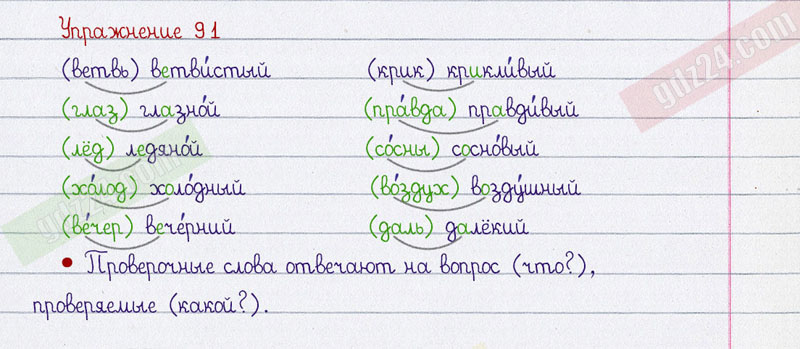 Упражнение 91
(ветвь) ветви́стый (крик) крикли́вый
(глаз) глазно́й (пра́вда) правди́вый
(лёд) ледяно́й (со́сны) сосно́вый
(хо́лод) холо́дный (во́здух) возду́шный
(ве́чер) вече́рний (даль) далёкий
• Проверочные слова отвечают на вопрос (что?),
проверяемые (какой?).
gdz24.com
gdz24.com